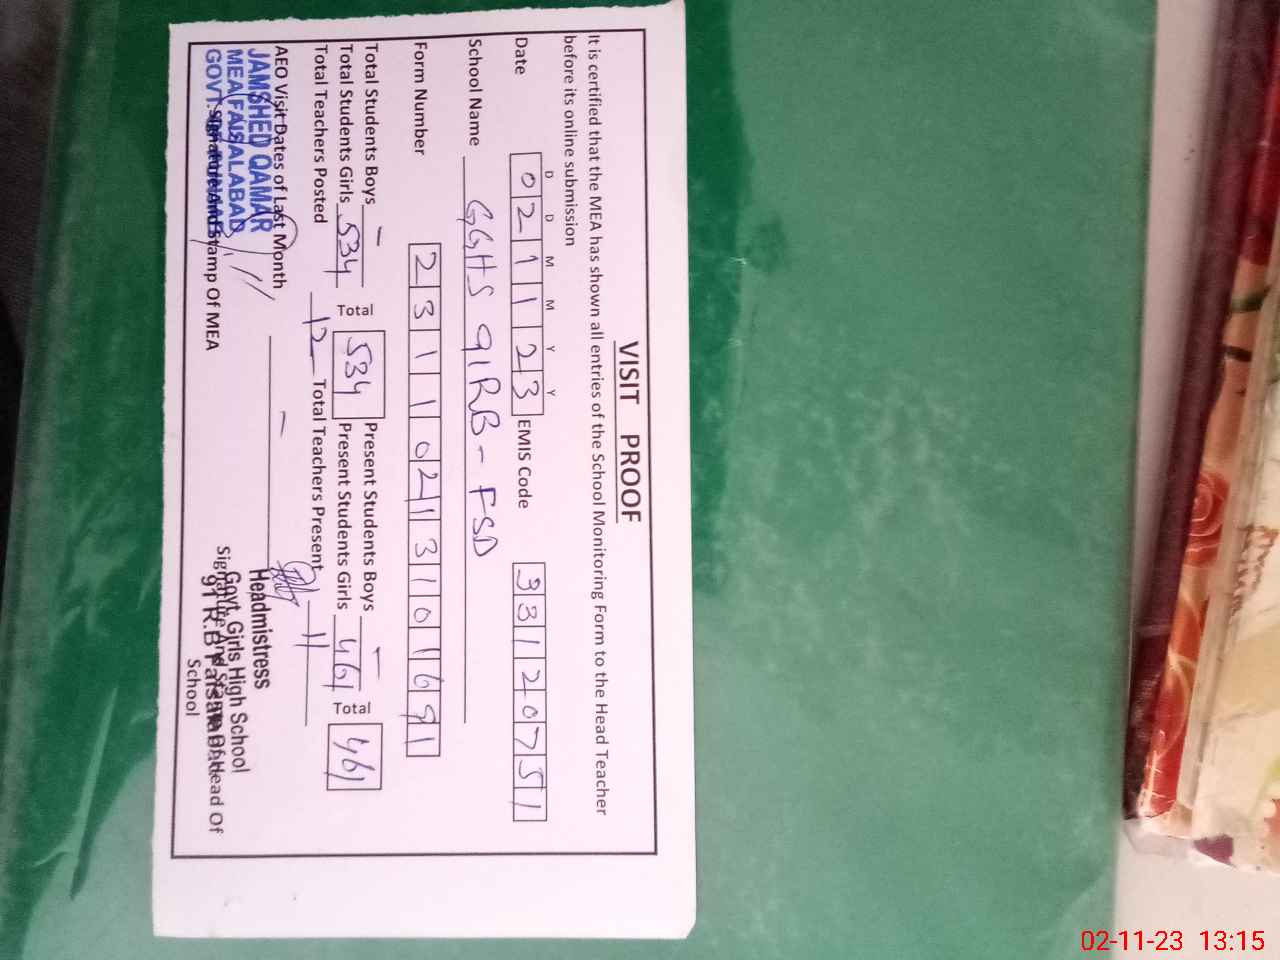 VISIT PROOF
It is certified that the MEA has shown all entries of the School Monitoring Form to the Head Teacher
before its online submission
D D M M Y Y
Date 0 2 1 1 2 3 EMIS Code 3 3 1 2 0 7 5 1
School Name GGHS 91RB - FSD
Form Number 2 3 1 1 0 2 1 3 1 0 1 6 9 1
Total Students Boys - Present Students Boys -
Total Students Girls 534 Total 534 Present Students Girls 461 Total 461
Total Teachers Posted 12 Total Teachers Present 11
AEO Visit Dates of Last Month -
JAMSHED QAMAR
MEA FAISALABAD
GOVT.
Signature And Stamp Of MEA
Headmistress
Govt. Girls High School
91 R.B Faisalabad
Signature And Stamp Of Head Of
School
02-11-23 13:15